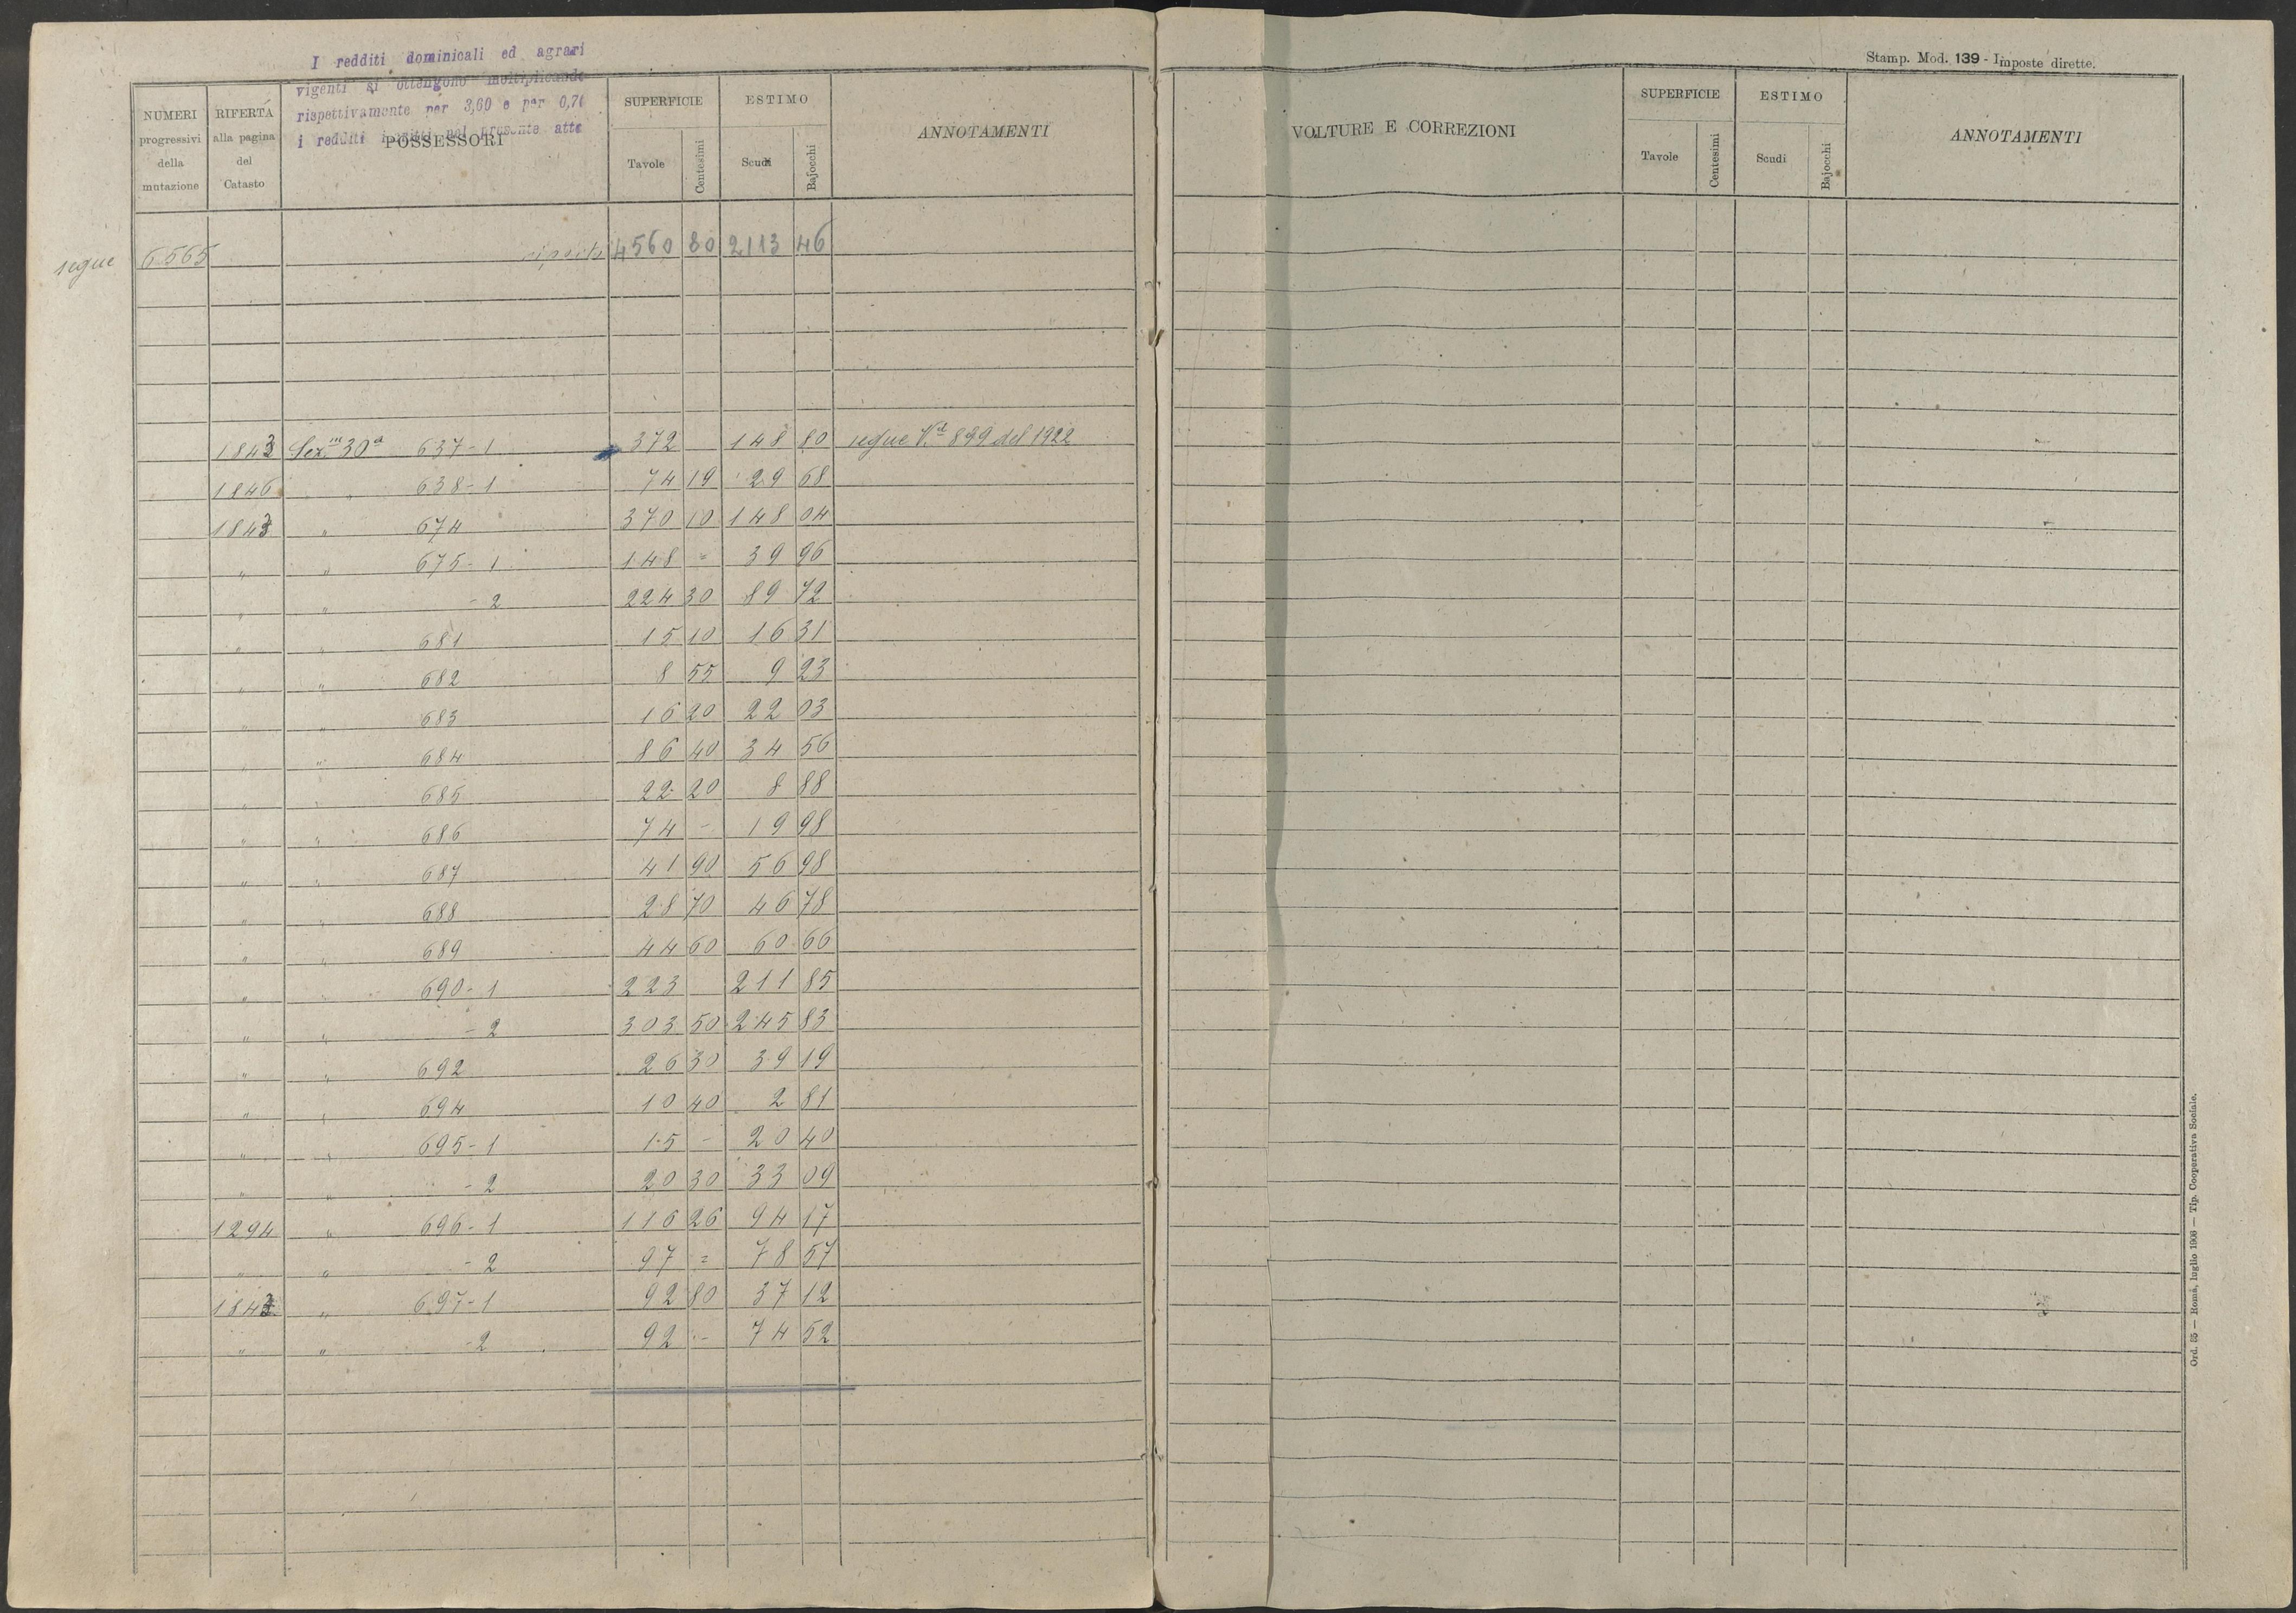 I redditi dominicali ed agrari
vigenti si ottengono moltiplicando
rispettivamente per 3,60 e per 0,70
i redditi inscritti nel presente atto
Stamp. Mod. 139 - Imposte dirette.
NUMERI progressivi della mutazione
RIFERTA alla pagina del Catasto
POSSESSORI
SUPERFICIE
Tavole Centesimi
ESTIMO
Scudi Bajocchi
ANNOTAMENTI
VOLTURE E CORREZIONI
SUPERFICIE
Tavole Centesimi
ESTIMO
Scudi Bajocchi
ANNOTAMENTI
segue 6565 riporto 4560 80 2113 46
1843 Sezne 30a 637-1 372 148 80 segue Va 899 del 1922
1846 " 638-1 74 19 29 68
1843 " 674 370 10 148 04
" " 675-1 148 = 39 96
" " -2 224 30 89 72
" " 681 15 10 16 31
" " 682 8 55 9 23
" " 683 16 20 22 03
" " 684 86 40 34 56
" " 685 22 20 8 88
" " 686 74 - 19 98
" " 687 41 90 56 98
" " 688 28 70 46 78
" " 689 44 60 60 66
" " 690-1 223 211 85
" " -2 303 50 245 83
" " 692 26 30 39 19
" " 694 10 40 2 81
" " 695-1 15 - 20 40
" " -2 20 30 33 09
1294 " 696-1 116 26 94 17
" " -2 97 = 78 57
1843 " 697-1 92 80 37 12
" " -2 92 - 74 52
Ord. 85 — Roma, luglio 1908 — Tip. Cooperativa Sociale.